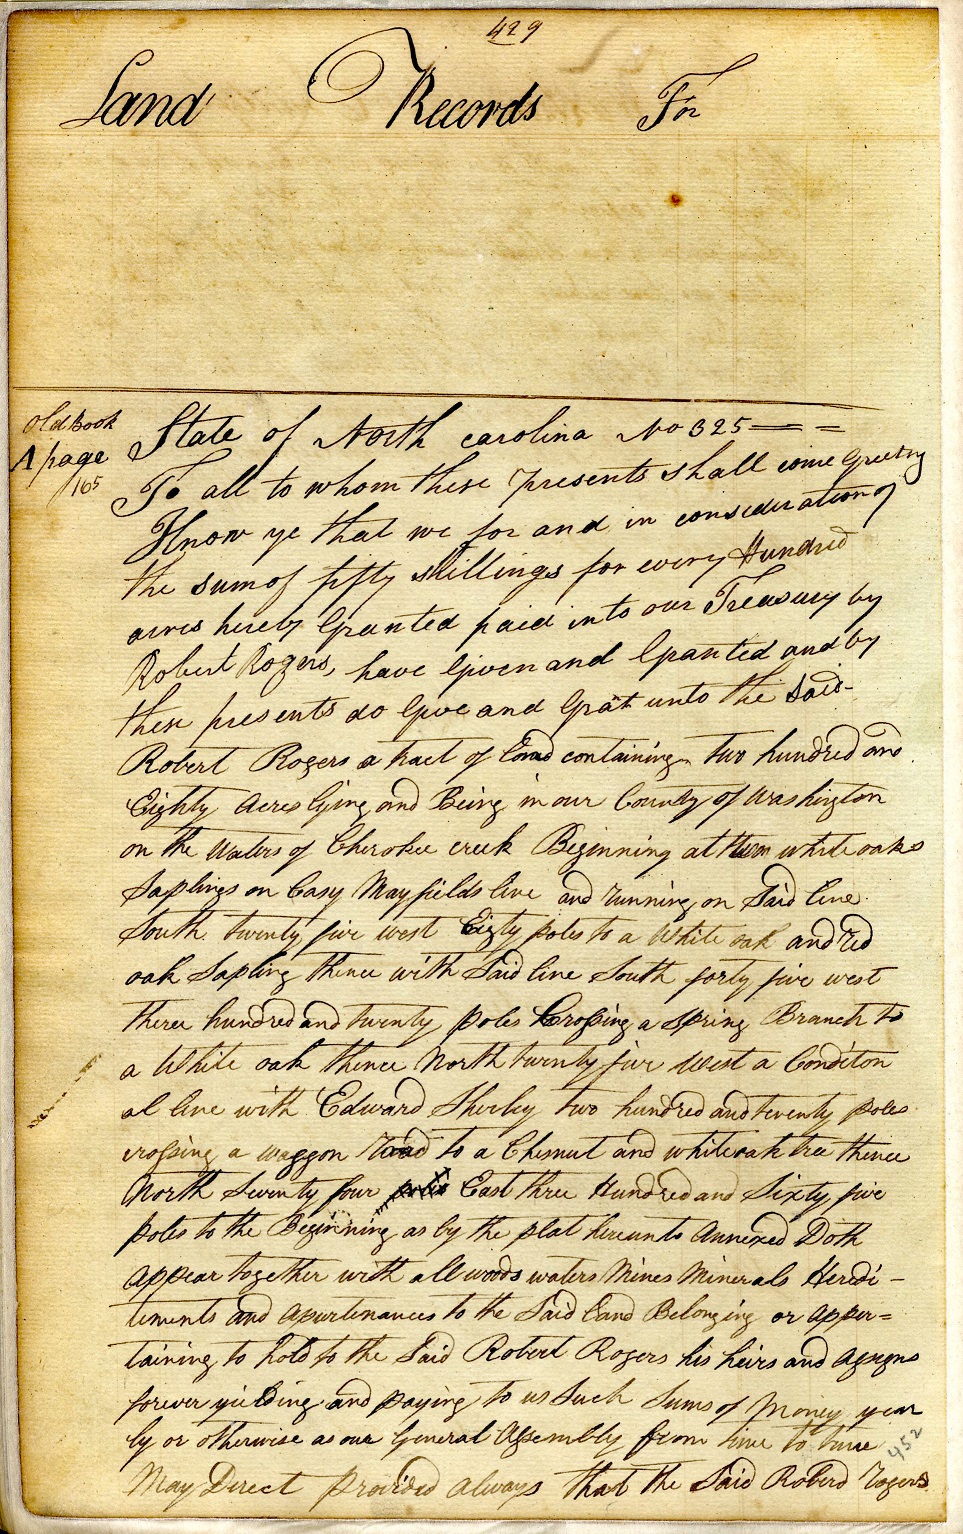 429
Land Records For
Old Book
A page
165
State of North carolina No 325
To all to whom these presents shall come Greeting
Know ye that we for and in consideration of
the sum of fifty shillings for every Hundred
acres hereby Granted paid into our Treasury by
Robert Rogers, have Given and Granted and by
these presents do Give and Grat unto the Said
Robert Rogers a tract of Land containing two hundred and
Eighty Acres lying and Being in our County of Washington
on the Waters of Cherokee creek Beginning at three white oaks
Saplings on Casy Mayfields line and running on Said line
South twenty five west Eigty poles to a White oak and red
oak Sapling thence with Said line South forty five west
three hundred and twenty poles Crossing a Spring Branch to
a White oak thence North twenty five West a Conditon
al line with Edward Sherley two hundred and twenty poles
crossing a waggon Road to a Chesnut and white oak tree thence
North Seventy four East three Hundred and Sixty five
poles to the Beginning as by the plat hereunto Annexed Doth
appear together with all woods waters Mines Minerals Heredi-
tments and apurtenances to the Said Land Belonging or apper=
taining to hold to the Said Robert Rogers his heirs and assigns
forever yielding and paying to us Such Sums of Money year
ly or otherwise as our General Assembly from time to time
May Direct provided always that the Said Roberd Rogers
452